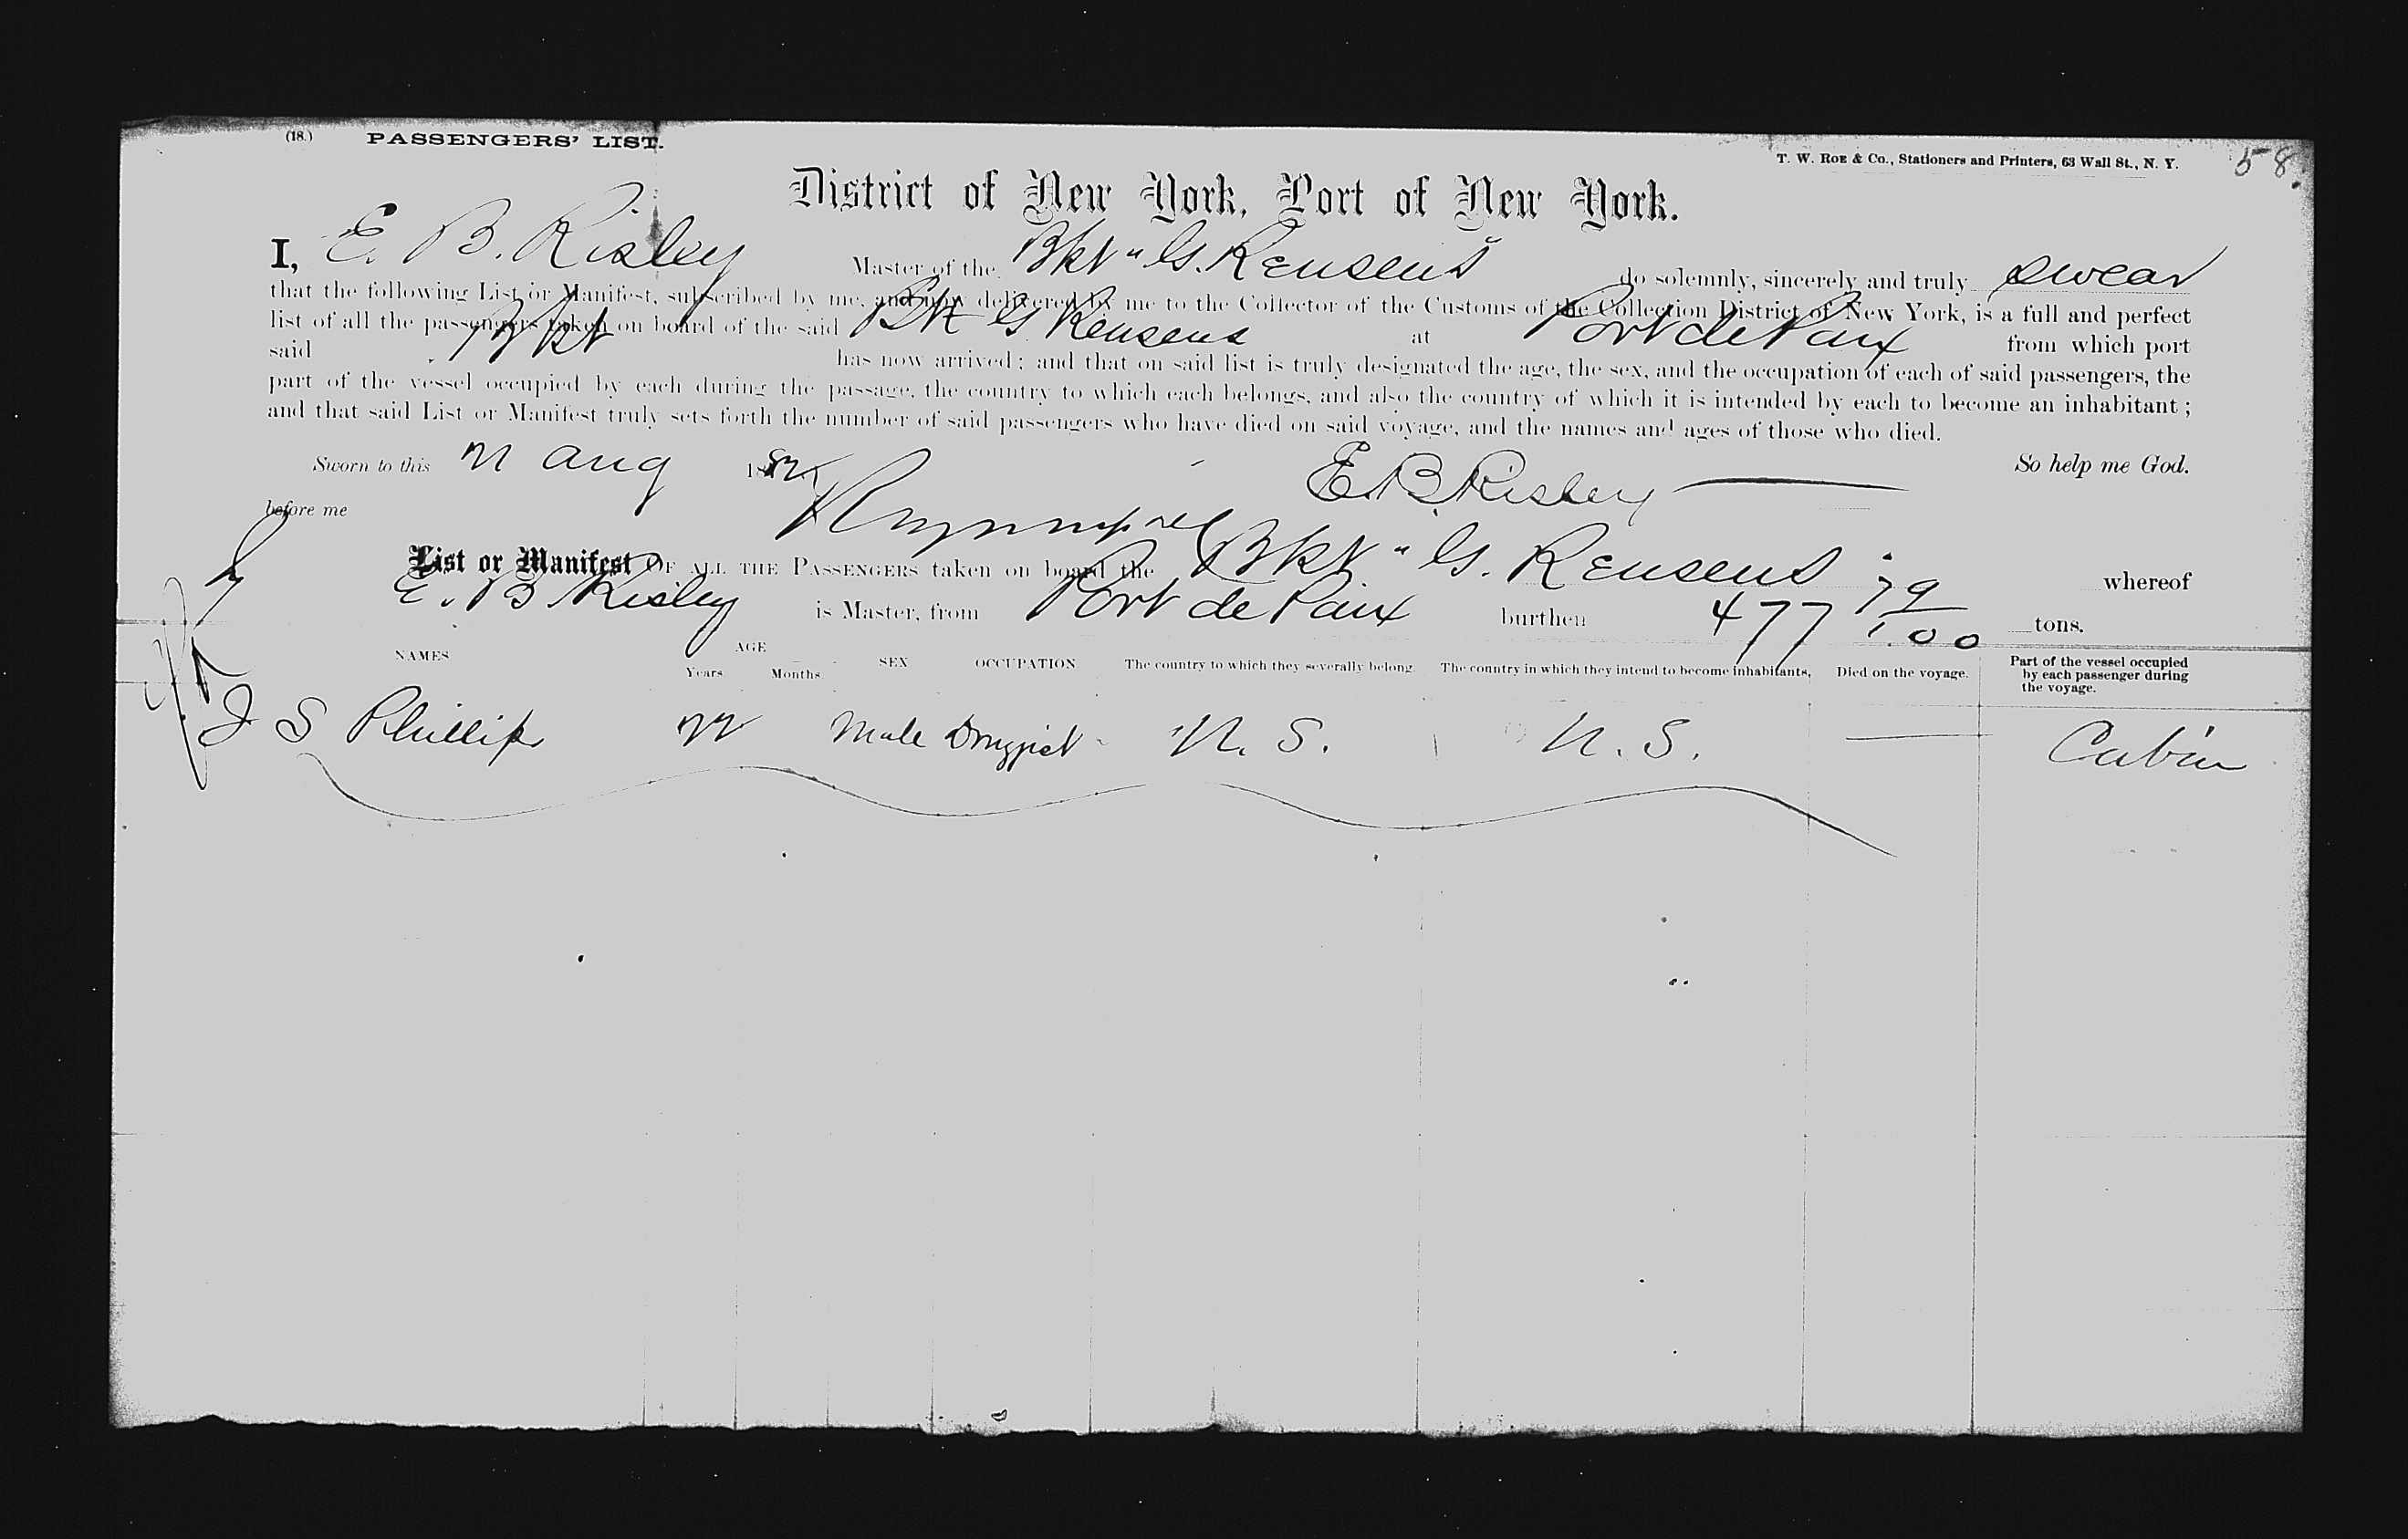 (18.) PASSENGERS' LIST.
T. W. ROE & Co., Stationers and Printers, 63 Wall St., N. Y.
58.
District of New York, Port of New York.
I, E. B. Risley Master of the Bkt "G. Reusens" do solemnly, sincerely and truly swear
that the following List or Manifest, subscribed by me, and now delivered by me to the Collector of the Customs of the Collection District of New York, is a full and perfect
list of all the passengers taken on board of the said Bkt G Reusens at Port de Paix from which port
said Bkt has now arrived; and that on said list is truly designated the age, the sex, and the occupation of each of said passengers, the
part of the vessel occupied by each during the passage, the country to which each belongs, and also the country of which it is intended by each to become an inhabitant;
and that said List or Manifest truly sets forth the number of said passengers who have died on said voyage, and the names and ages of those who died.
Sworn to this Aug 188 E B Risley So help me God.
before me
List or Manifest OF ALL THE PASSENGERS taken on board the Bkt "G. Reusens" whereof
E. B Risley is Master, from Port de Paix burthen 477 79/100 tons.
NAMES AGE Years Months SEX OCCUPATION The country to which they severally belong. The country in which they intend to become inhabitants, Died on the voyage. Part of the vessel occupied by each passenger during the voyage.
J S Phillips Male Druggist U. S. U. S. Cabin